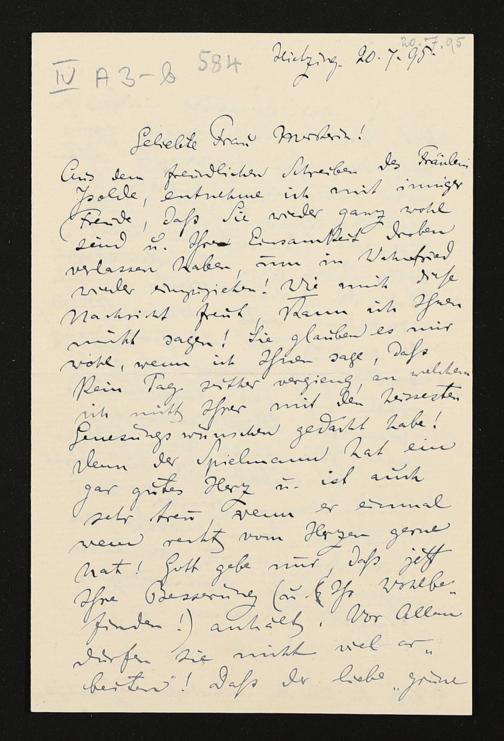 20.7.95
IV A 3-8 584
Hietzing. 20.7.95.
Geliebte Frau Meisterin!
Aus dem freundlichen Schreiben des Fräulein
Isolde, entnehme ich mit inniger
Freude, daß Sie wieder ganz wohl
sind u. Ihre Einsamkeit droben
verlassen haben, um in Wahnfried
wieder einzuziehen! Wie mich diese
Nachricht freut, kann ich Ihnen
nicht sagen! Sie glauben es mir
wohl, wenn ich Ihnen sage, daß
kein Tag seither vergieng, an welchem
ich nicht Ihrer mit den heissesten
Genesungswünschen gedacht habe!
Denn der Spielmann hat ein
gar gutes Herz u. ist auch
sehr treu wenn er einmal
wenn recht vom Herzen gerne
hat! Gott gebe nur, daß jetzt
Ihre Besserung (u. Ihr Wohlbe-
finden!) anhält. Vor Allem
dürfen Sie nicht viel ar-
beiten! Daß der liebe „grüne